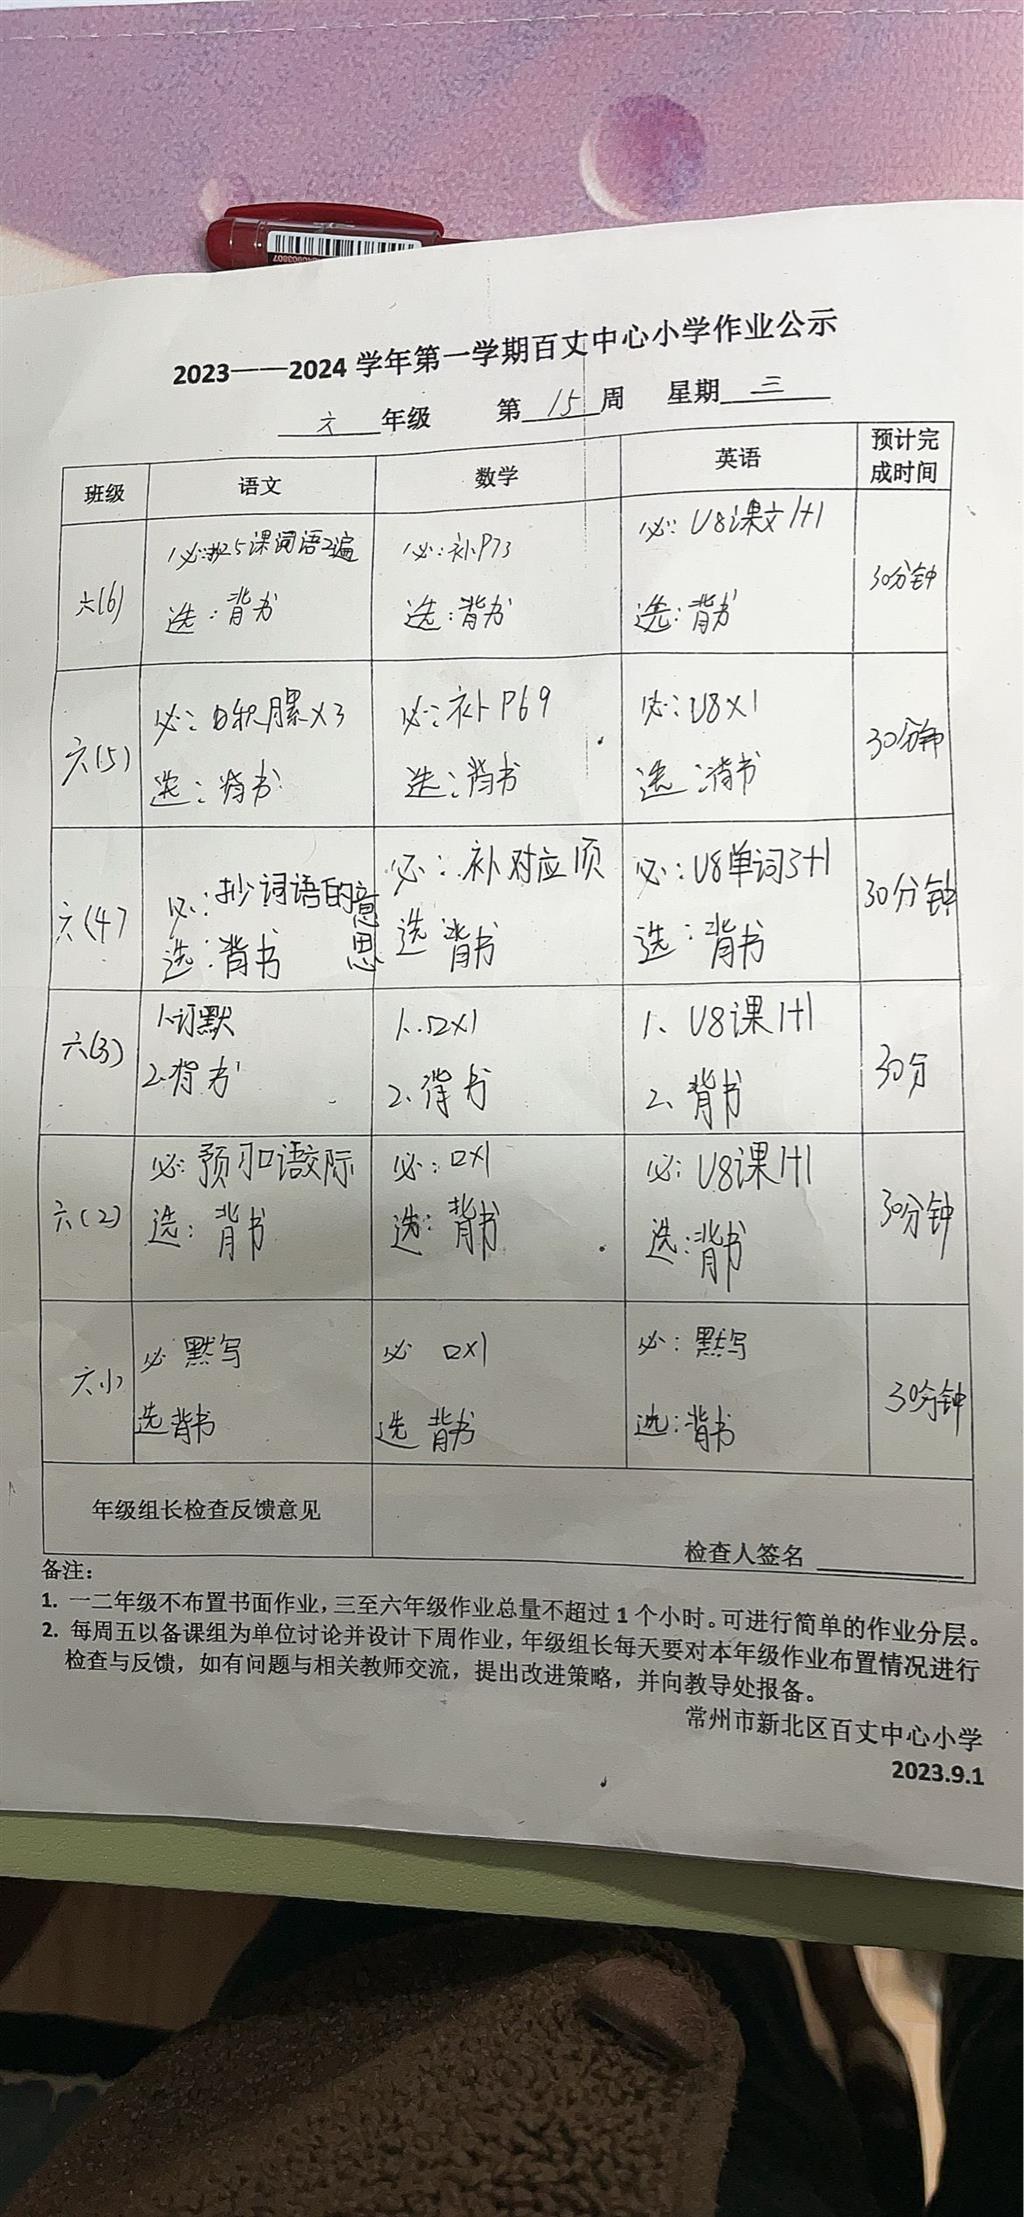 2023——2024 学年第一学期百丈中心小学作业公示
六 年级 第 15 周 星期 三
班级 语文 数学 英语 预计完成时间
六(6)
必:抄25课词语2遍
选:背书
必:补P73
选:背书
必:U8课文1+1
选:背书
30分钟
六(5)
必: ×3
选:背书
必:补P69
选:背书
必:U8×1
选:背书
30分钟
六(4)
必:抄词语的意思
选:背书
必:补对应页
选 背书
必:U8单词3+1
选:背书
30分钟
六(3)
1.词默
2.背书
1.口×1
2.背书
1、U8课1+1
2、背书
30分
六(2)
必:预习口语交际
选:背书
必:口×1
选:背书
必:U8课1+1
选:背书
30分钟
六(1)
必 默写
选 背书
必 口×1
选 背书
必:默写
选:背书
30分钟
年级组长检查反馈意见
检查人签名
备注:
1. 一二年级不布置书面作业,三至六年级作业总量不超过 1 个小时。可进行简单的作业分层。
2. 每周五以备课组为单位讨论并设计下周作业,年级组长每天要对本年级作业布置情况进行
检查与反馈,如有问题与相关教师交流,提出改进策略,并向教导处报备。
常州市新北区百丈中心小学
2023.9.1